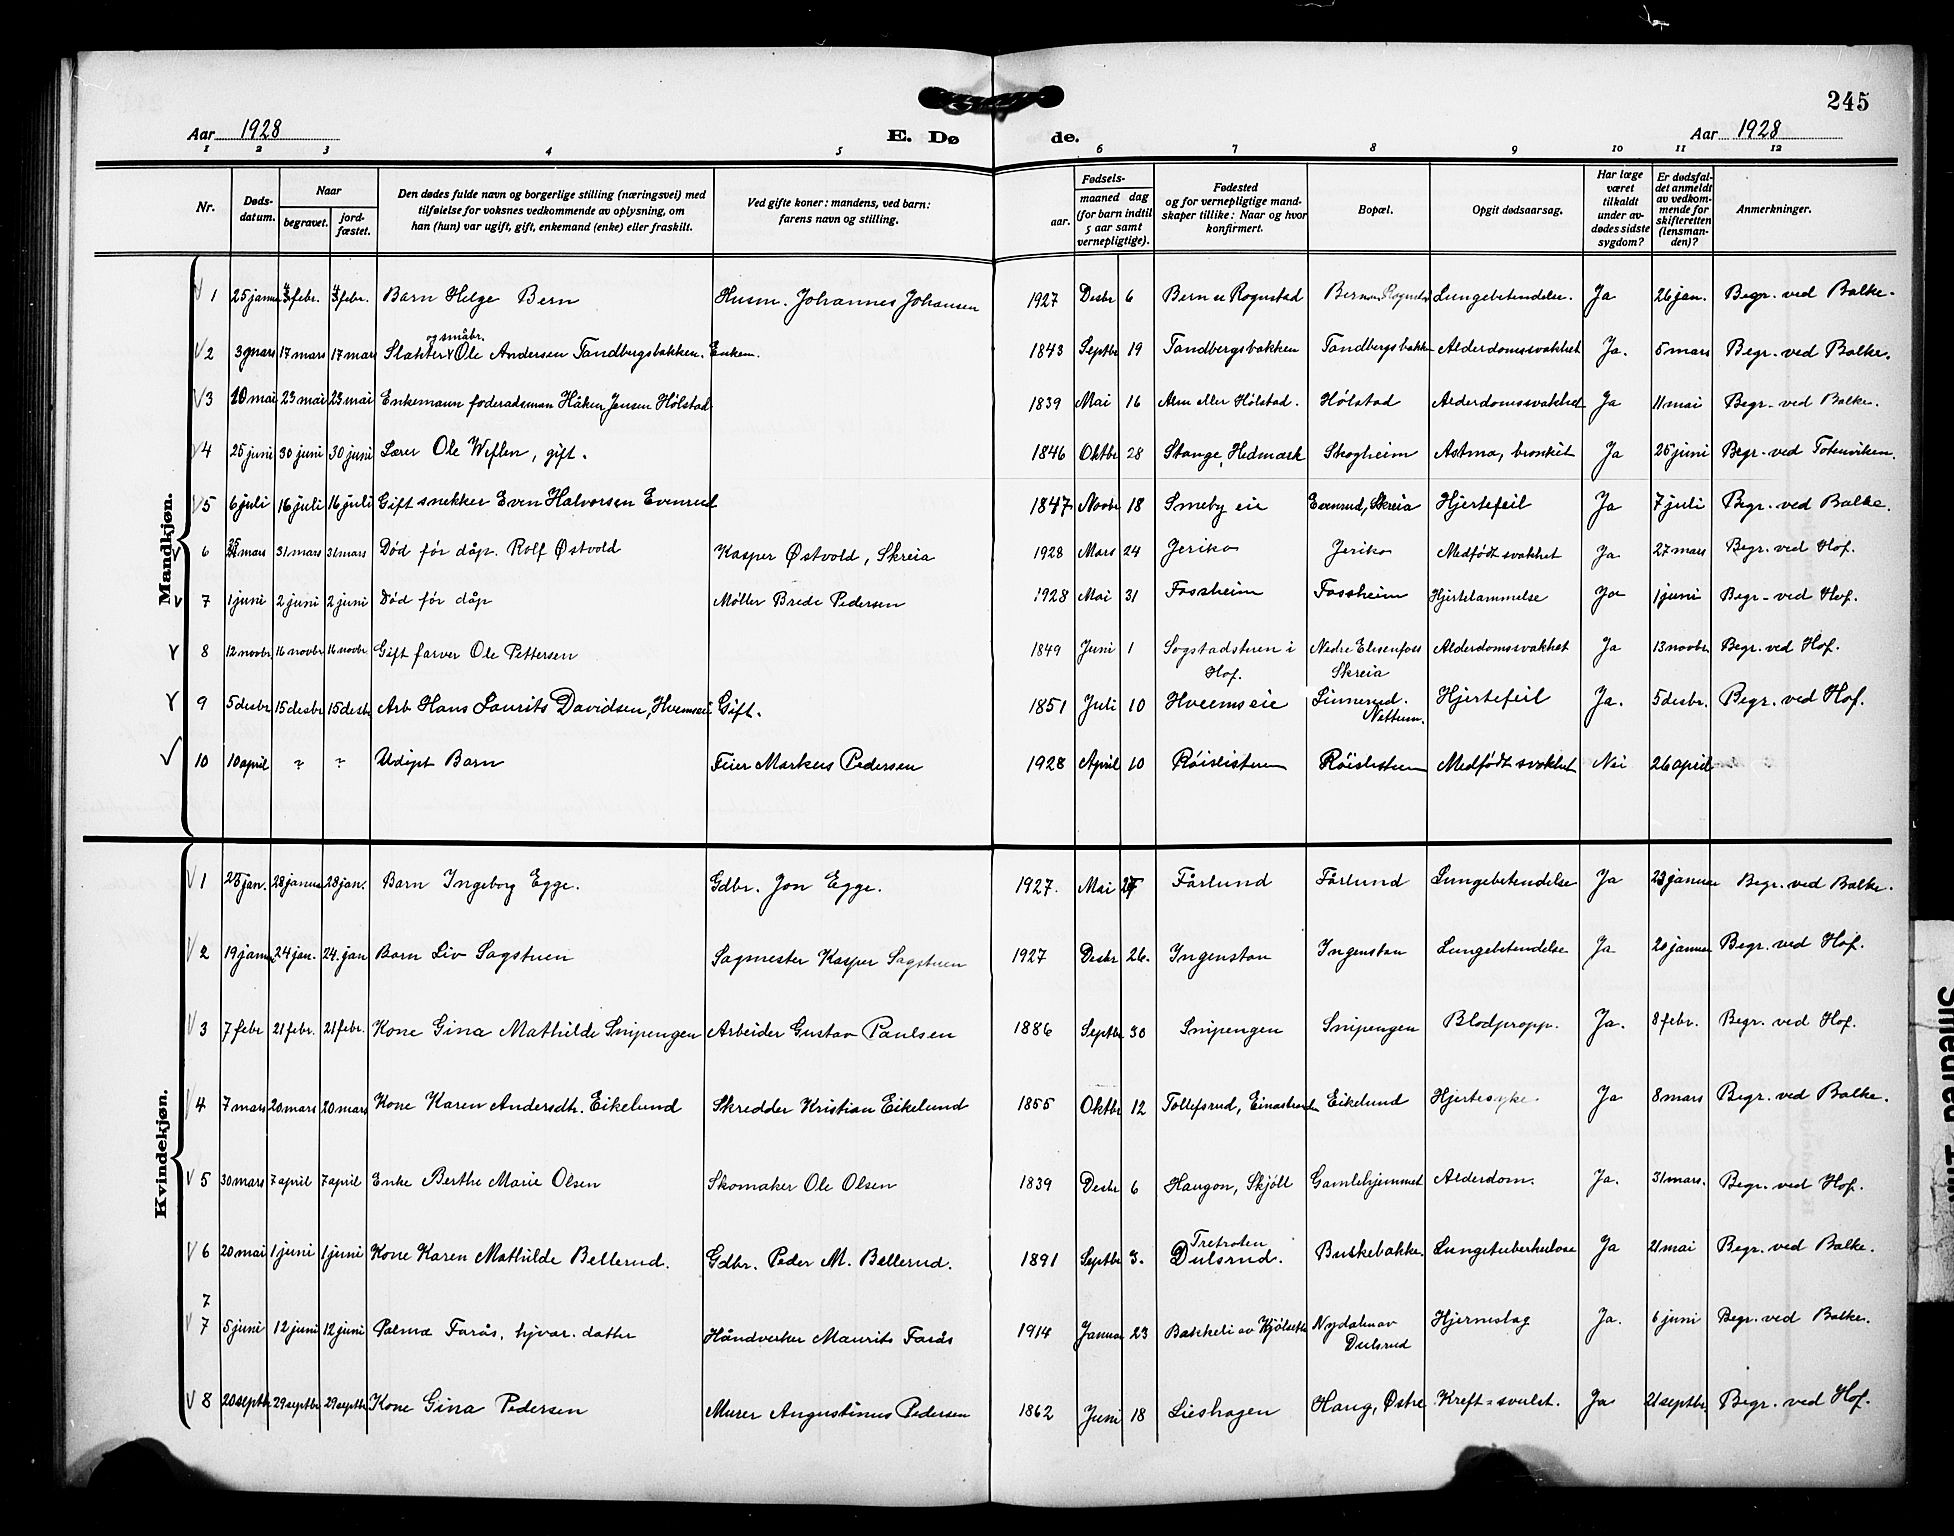 245
Aar 1928 E. Døde. Aar 1928
1 2 3 4 5 6 7 8 9 10 11 12
Nr. | Døds-datum. | Naar begravet. | jord-fæstet. | Den dødes fulde navn og borgerlige stilling (næringsvei) med tilføielse for voksnes vedkommende av oplysning, om han (hun) var ugift, gift, enkemand (enke) eller fraskilt. | Ved gifte koner: mandens, ved barn: farens navn og stilling. | Fødsels- aar. maaned dag (for barn indtil 5 aar samt vernepligtige). | Fødested og for vernepligtige mandskaper tillike: Naar og hvor konfirmert. | Bopæl. | Opgit dødsaarsag. | Har læge været tilkaldt under avdødes sidste sygdom? | Er dødsfaldet anmeldt av vedkommende for skifteretten (lensmanden)? | Anmerkninger.
Mandkjøn.
1 25 januar 4 febr. 4 febr. Barn Helge Bern Husm. Johannes Johansen 1927 Desbr 6 Bern u Rognstad Bern u. Rognstad Lungebetendelse. Ja 26 jan. Begr. ved Balke.
2 3 mars 17 mars 17 mars Slakter og småbr. Ole Andersen Tandbergsbakken. Enkem. 1843 Septbr 19 Tandbergsbakken Tandbergsbakk Alderdomssvakhet Ja. 5 mars Begr. ved Balke.
3 10 mai 23 mai 23 mai Enkemann foderadsman Håken Jensen Hølstad 1839 Mai 16 Alm eller Hølstad. Hølstad Alderdomssvakhet Ja 11 mai Begr. ved Balke.
4 25 juni 30 juni 30 juni Lærer Ole Weflen, gift. 1846 Oktbr 28 Stange, Hedmark Skogheim Astma, bronkit Ja 25 juni Begr. ved Totenviken.
5 6 juli 16 juli 16 juli Gift snekker Even Halvorsen Evenrud 1847 Novbr 18 Smeby eie Evenrud, Skreia Hjertefeil Ja 7 juli Begr. ved Balke.
6 25 mars 31 mars 31 mars Død før dåp. Rolf Østvold Kasper Østvold, Skreia 1928 Mars 24 Jeriko Jeriko Medfødt svakhet Ja 27 mars Begr. ved Hof.
7 1 juni 2 juni 2 juni Død før dåp Møller Brede Pedersen 1928 Mai 31 Fossheim Fossheim Hjertelammelse Ja 1 juni Begr. ved Hof.
8 12 novbr 16 novbr 16 novbr Gift farver Ole Pettersen 1849 Juni 1 Sogstadstuen i Hof. Nedre Elisenfoss Skreia Alderdomssvakhet Ja 13 novbr. Begr. ved Hof.
9 5 desbr 15 desbr 15 desbr Arb Hans Laurits Davidsen, Hvemseie Gift. 1851 Juli 10 Hveemseie Linnerud. Nettum. Hjertefeil Ja. 5 desbr. Begr. ved Hof.
10 10 april ? ? Udøpt Barn Feier Markus Pedersen 1928 April 10 Røislistuen Røislistuen Medfødt svakhet Nei 26 april
Kvindekjøn.
1 25 jan. 28 januar 28 jan. Barn Ingeborg Egge. Gdbr. Jon Egge. 1927. Mai Fårlund Fårlund Lungebetendelse Ja 23 januar Begr. ved Balke.
2 19 januar 24 jan. 24. jan Barn Liv Sagstuen Sagmester Kasper Sagstuen 1927 Desbr 26. Ingenston Ingenston Lungebetendelse Ja 20 januar Begr. ved Hof.
3 7 febr 21 febr. 21 febr. Kone Gina Mathilde Snipengen Arbeider Gustav Paulsen 1886 Septbr 30 Snipengen Snipengen Blodpropp. Ja. 8 febr. Begr. ved Hof.
4 7 mars 20 mars 20 mars Kone Karen Andersdtr. Eikelund Skredder Kristian Eikelund 1855 Oktbr 12 Tollefsrud, Einastranden Eikelund Hjertesyke. Ja 8 mars Begr. ved Balke.
5 30 mars 7 april 7 april Enke Berthe Marie Olsen Skomaker Ole Olsen 1839 Desbr 6 Haugon, Skjøll Gamlehjemmet Alderdom. Ja. 31 mars. Begr. ved Hof.
6 20 mai 1 juni 1 juni Kone Karen Mathilde Bellerud. Gdbr. Peder M. Bellerud. 1891 Septbr 3. Tretroten Dulsrud. Buskebakke. Lungetuberkulose Ja 21 mai Begr. ved Balke.
7
7 5 juni 12 juni 12 juni Palma Farås, hjvær. datter Håndverker Maurits Farås 1914 Januar 23 Bakkeli av Kjølseth Nydalen av Dulsrud Hjerneslag Ja. 6 juni Begr. ved Balke.
8 20 septbr 29 septbr 29 septbr Kone Gina Pedersen Murer Augustinus Pedersen 1862 Juni 18 Lieshagen Haug, Østre Kreft-svulst. Ja 21 septbr. Begr. ved Hof.